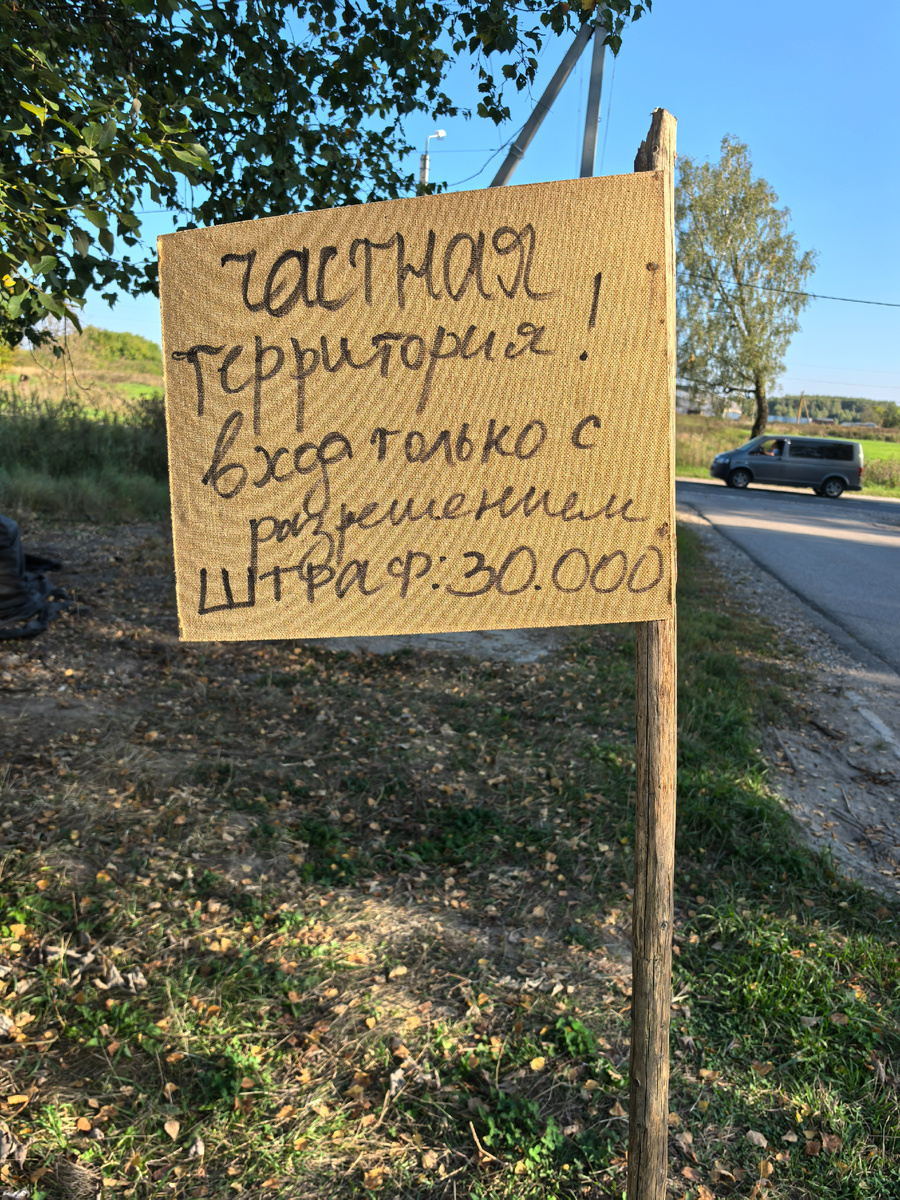 частная
территория!
вход только с
разрешением
штраф: 30.000